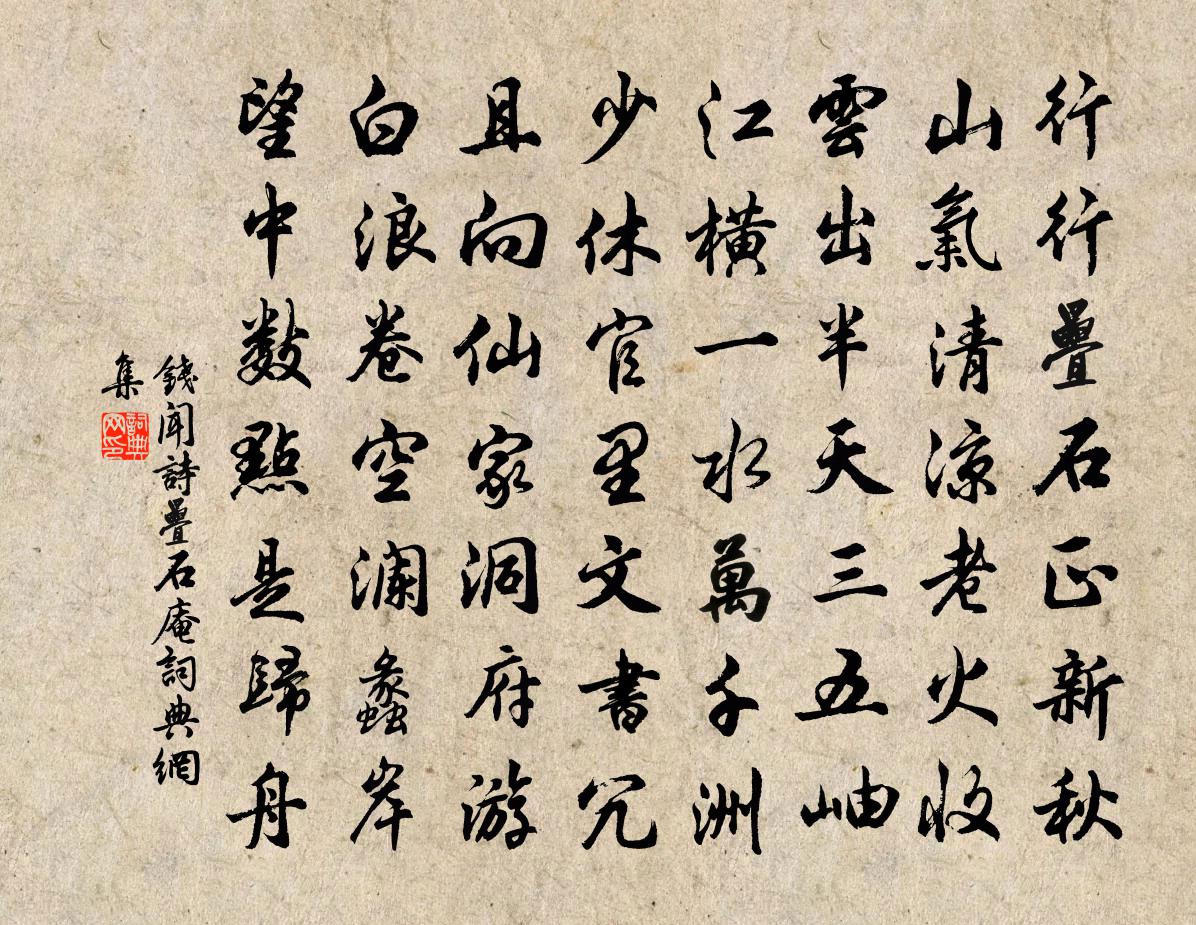 行行疊石正新秋
山氣清涼老火收
雲出半天三五岫
江橫一水萬千洲
少休官里文書冗
且向仙家洞府游
白浪卷空澜蠡岸
望中數點是歸舟
錢聞詩疊石庵詞典網
集
詞典网印